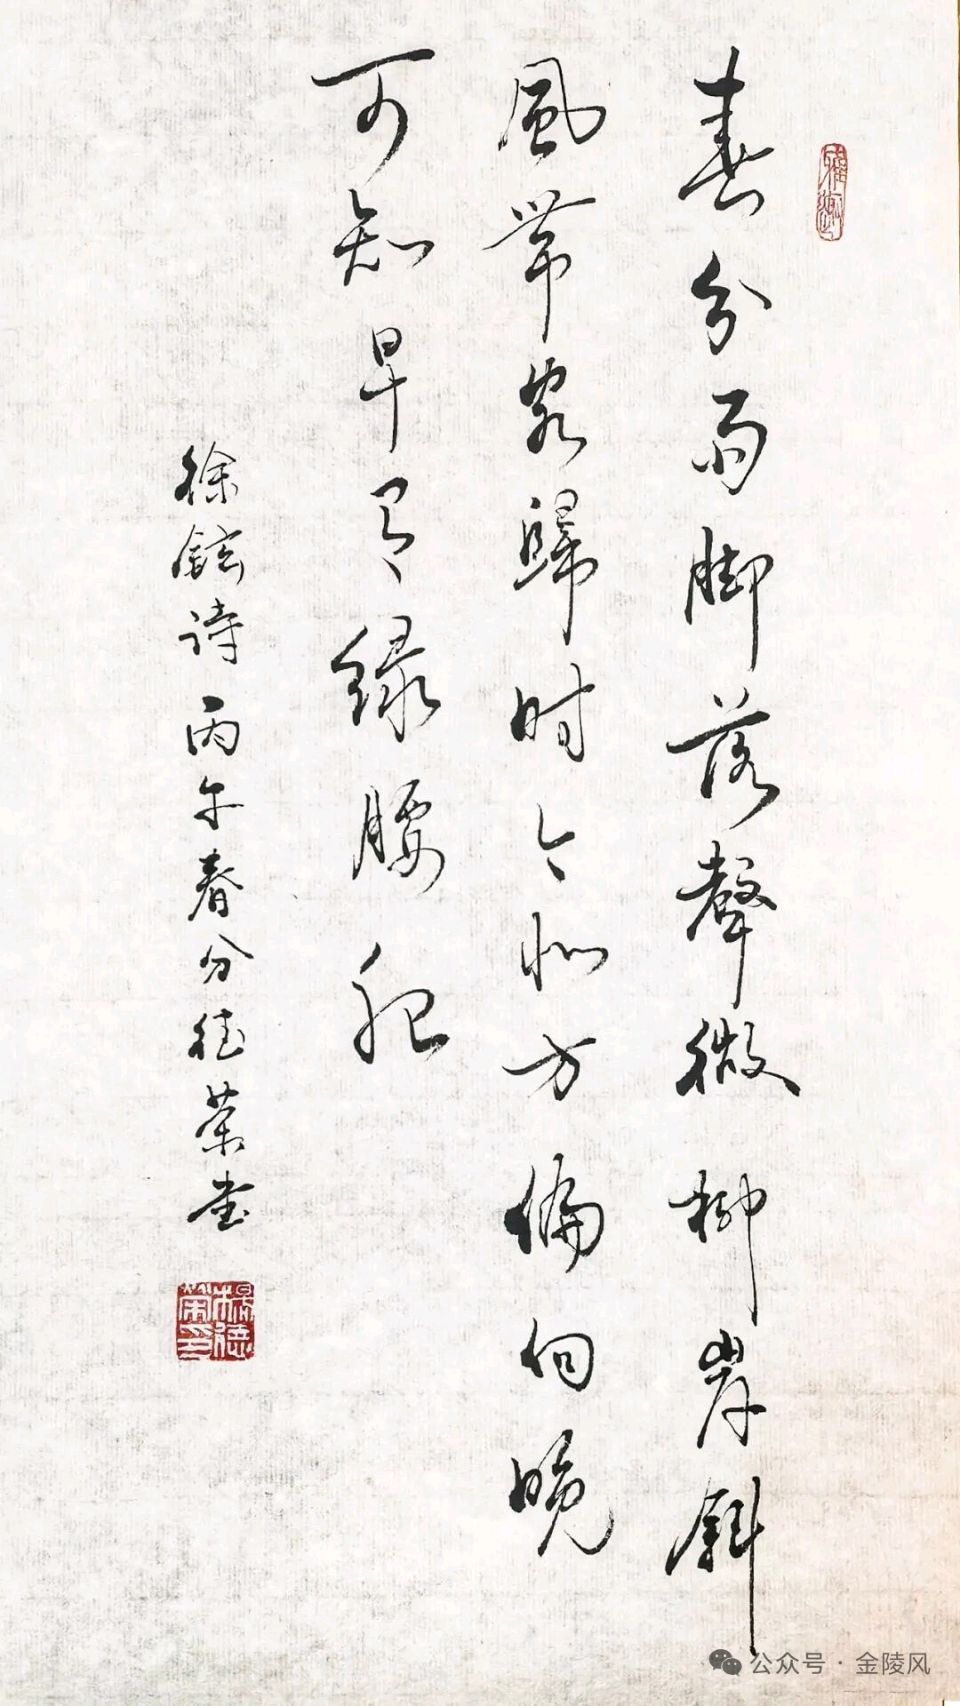 春分雨脚落聲微柳岸斜
風带客歸时令北方偏向晚
可知早有绿腰肥
徐鉉诗丙午春分德荣书
公众号·金陵风